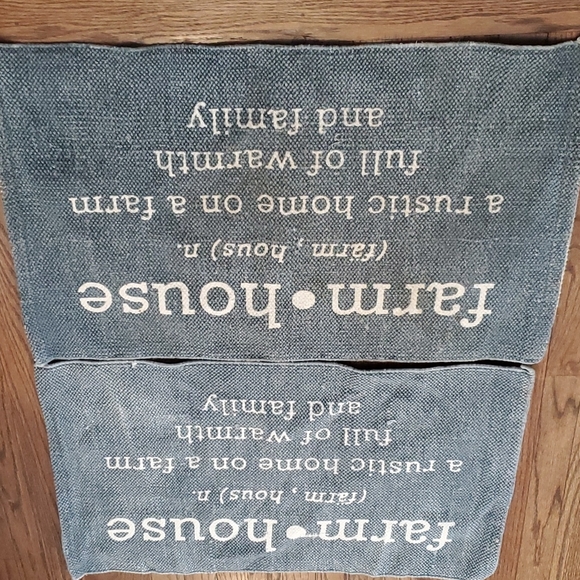 farm•house
(farm , hous) n.
a rustic home on a farm
full of warmth
and family
farm•house
(farm , hous) n.
a rustic home on a farm
full of warmth
and family